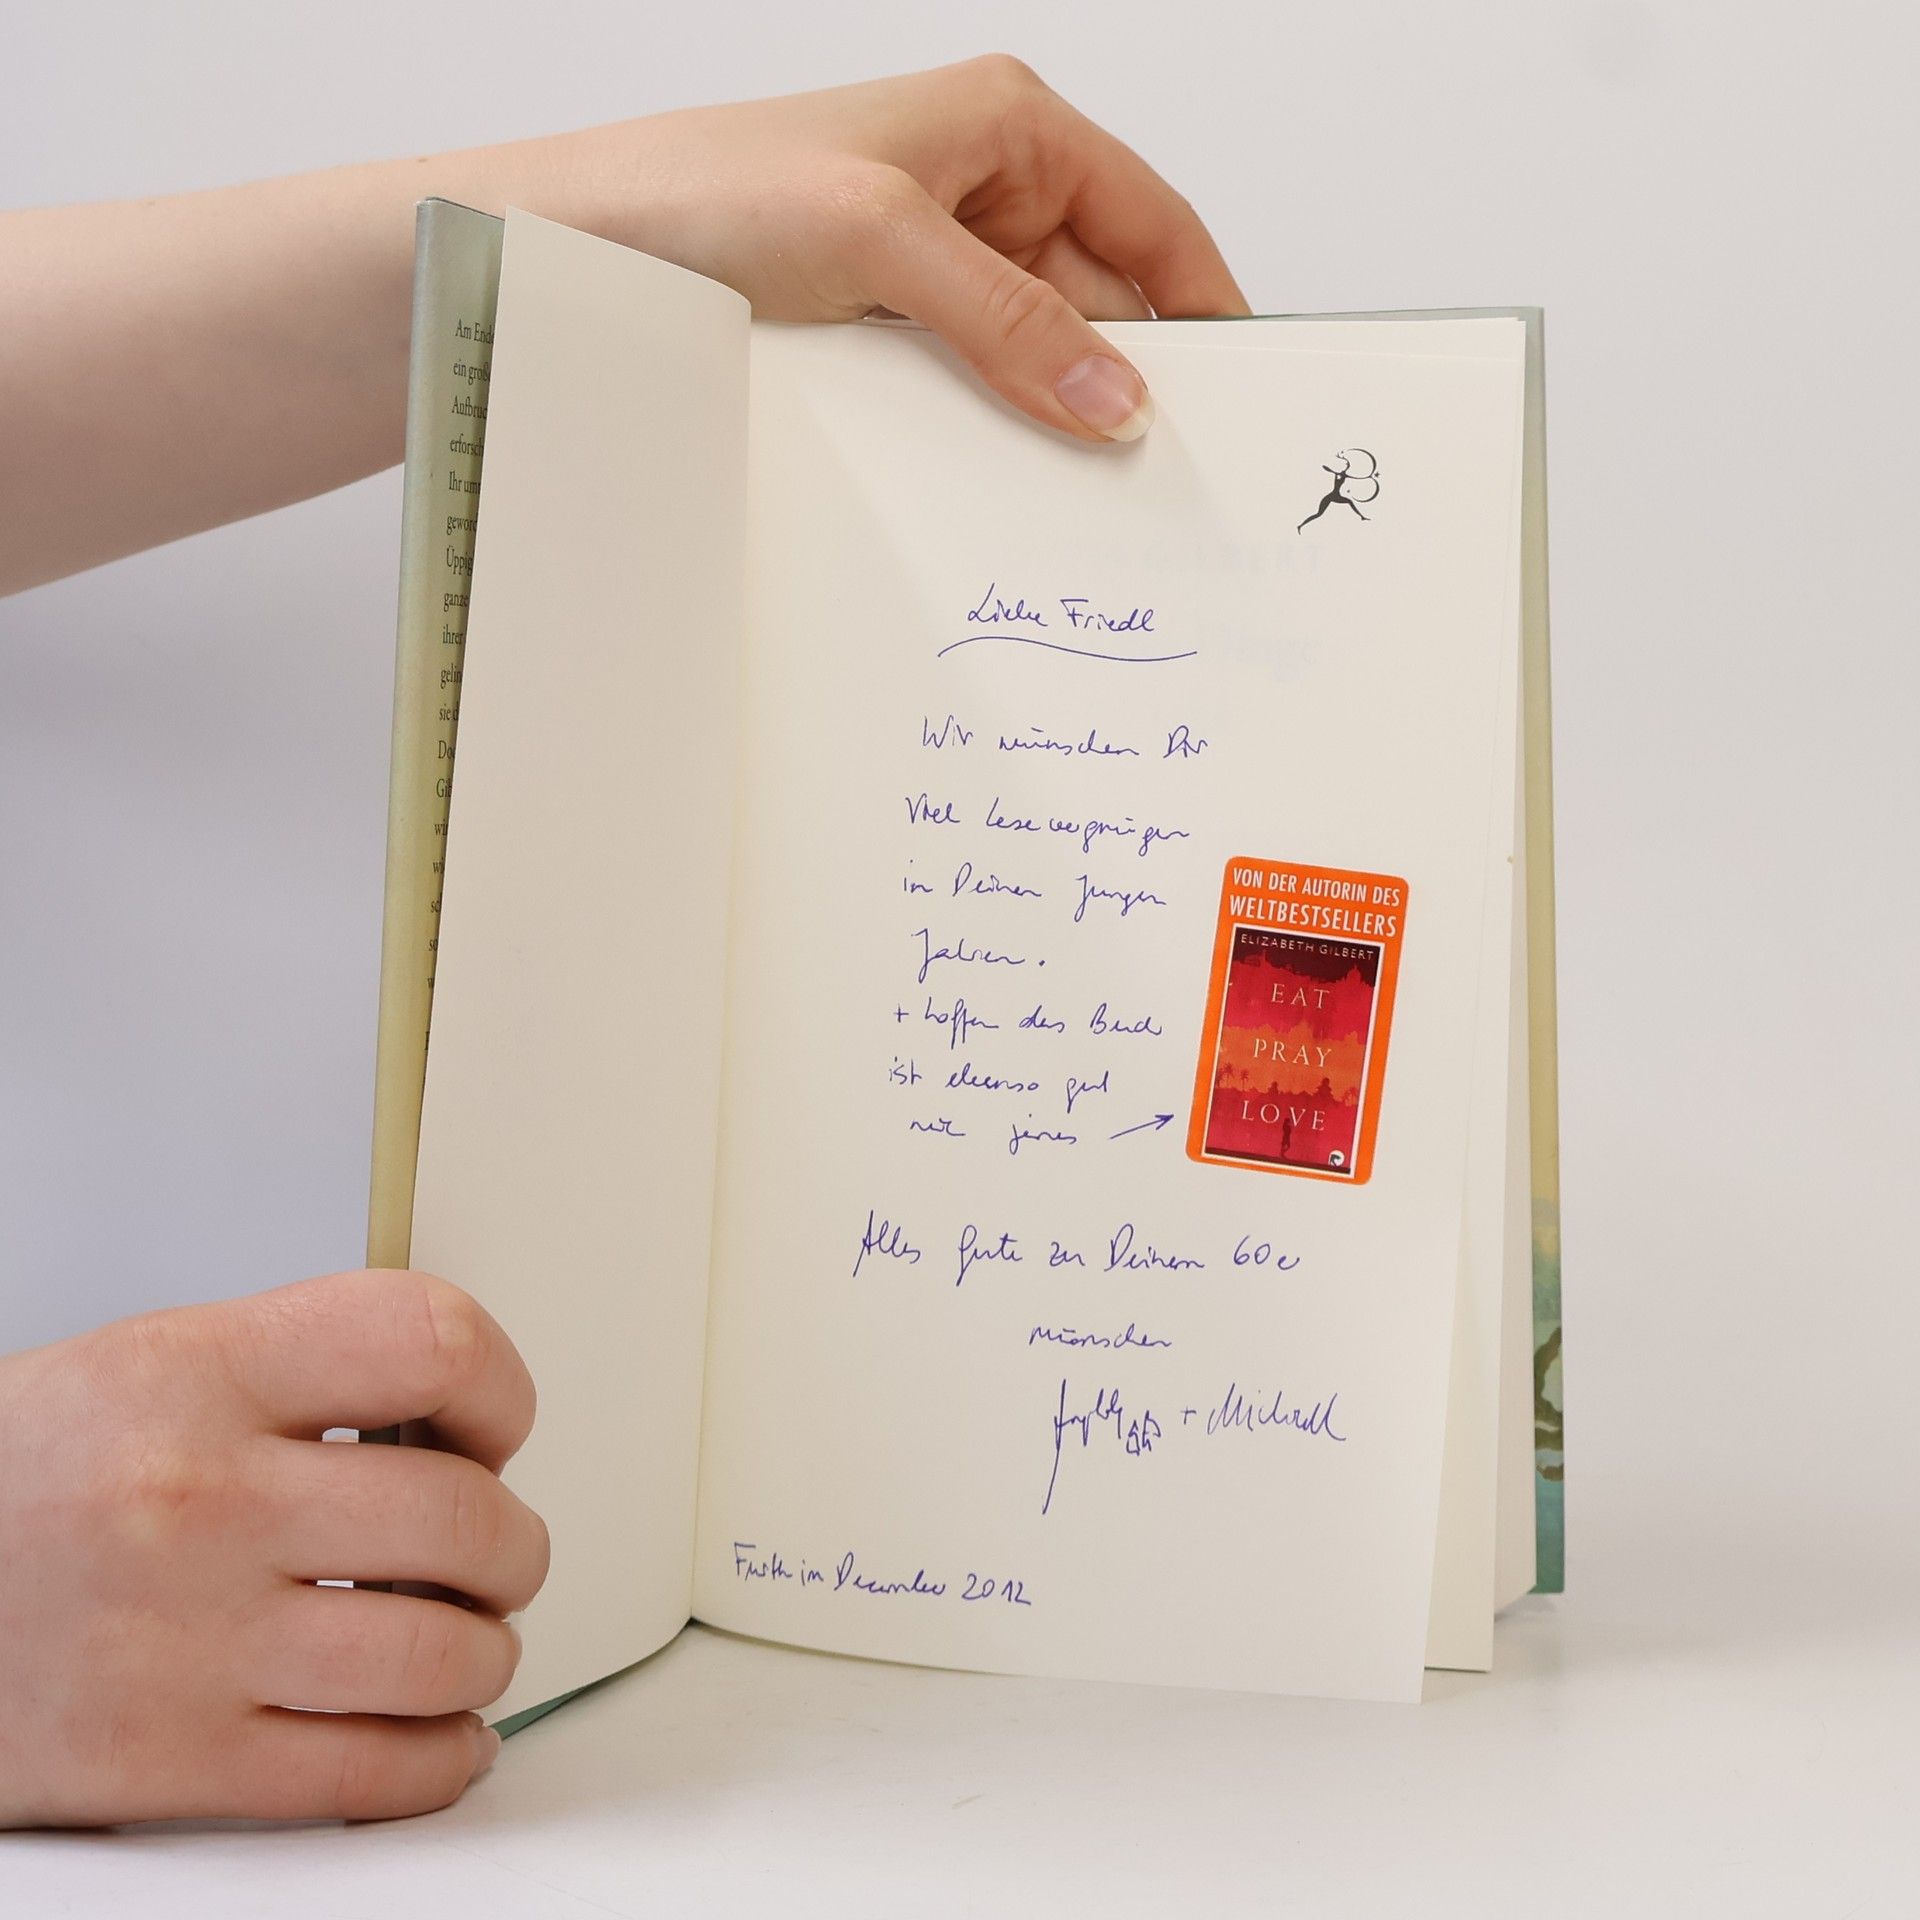 Am Ende
ein große
Aufbruc
erforsch
Ihr um
geword
Üppig
ganze
ihrer
gelin
sie d
Do
Gi
wi
Liebe Friedl
Wir wünschen Dir
Viel Lesevergnügen
in Deinen Jungen
Jahren.
+ hoffen das Buch
ist ebenso gut
wie jenes →
VON DER AUTORIN DES
WELTBESTSELLERS
ELIZABETH GILBERT
EAT
PRAY
LOVE
Alles Gute zu Deinem 60er
wünschen
+ Michael
Furth im Dezember 2012